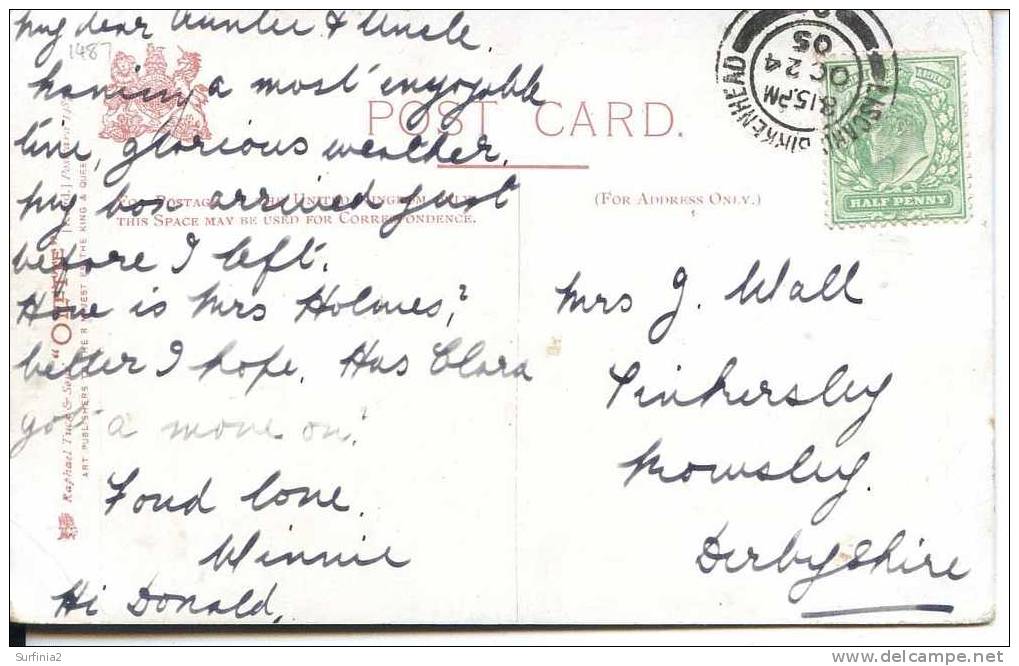 My dear Auntie & Uncle.
1487
having a most enjoyable
time, glorious weather.
my box arrived just
before I left.
How is Mrs Holmes,?
better I hope. Has Clara
got a move on?
Fond love.
Winnie
Hi Donald,
POST CARD.
FOR POSTAGE IN THE UNITED KINGDOM ONLY
THIS SPACE MAY BE USED FOR CORRESPONDENCE.
(FOR ADDRESS ONLY.)
Raphael Tuck & Sons' "OILETTE" [Regd.]
ART PUBLISHERS TO THEIR MAJESTIES THE KING & QUEEN
LISCARD BIRKENHEAD
8.15 PM
OC 24
05
HALF PENNY
Mrs J. Wall
Tinkersley
Rowsley.
Derbyshire
Surfinia2
http://www.delcampe.net